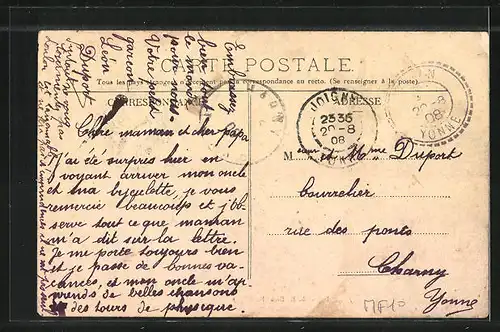 CARTE POSTALE
Tous les pays étrangers n'acceptent pas la correspondance au recto. (Se renseigner à la poste).
CORRESPONDANCE
ADRESSE
Chère maman et cher papa
J'ai été surpris hier en
voyant arriver mon oncle
et ma bicyclette, je vous
remercie beaucoups et j'ob-
serve tout ce que maman
m'a dit sur la lettre.
Je me porte toujours bien
et je passe de bonnes va-
cances, et mon oncle m'ap-
prends de belles chansons
et des tours de physique.
Embrassez
bien tout
le monde
pour nous.
Votre petit
garçon
Léon
Duport
JOIGNY
2336
20-8
08
20-8
08
YONNE
M et Mme Duport
Bourrelier
rue des ponts
Charny
Yonne
MF10